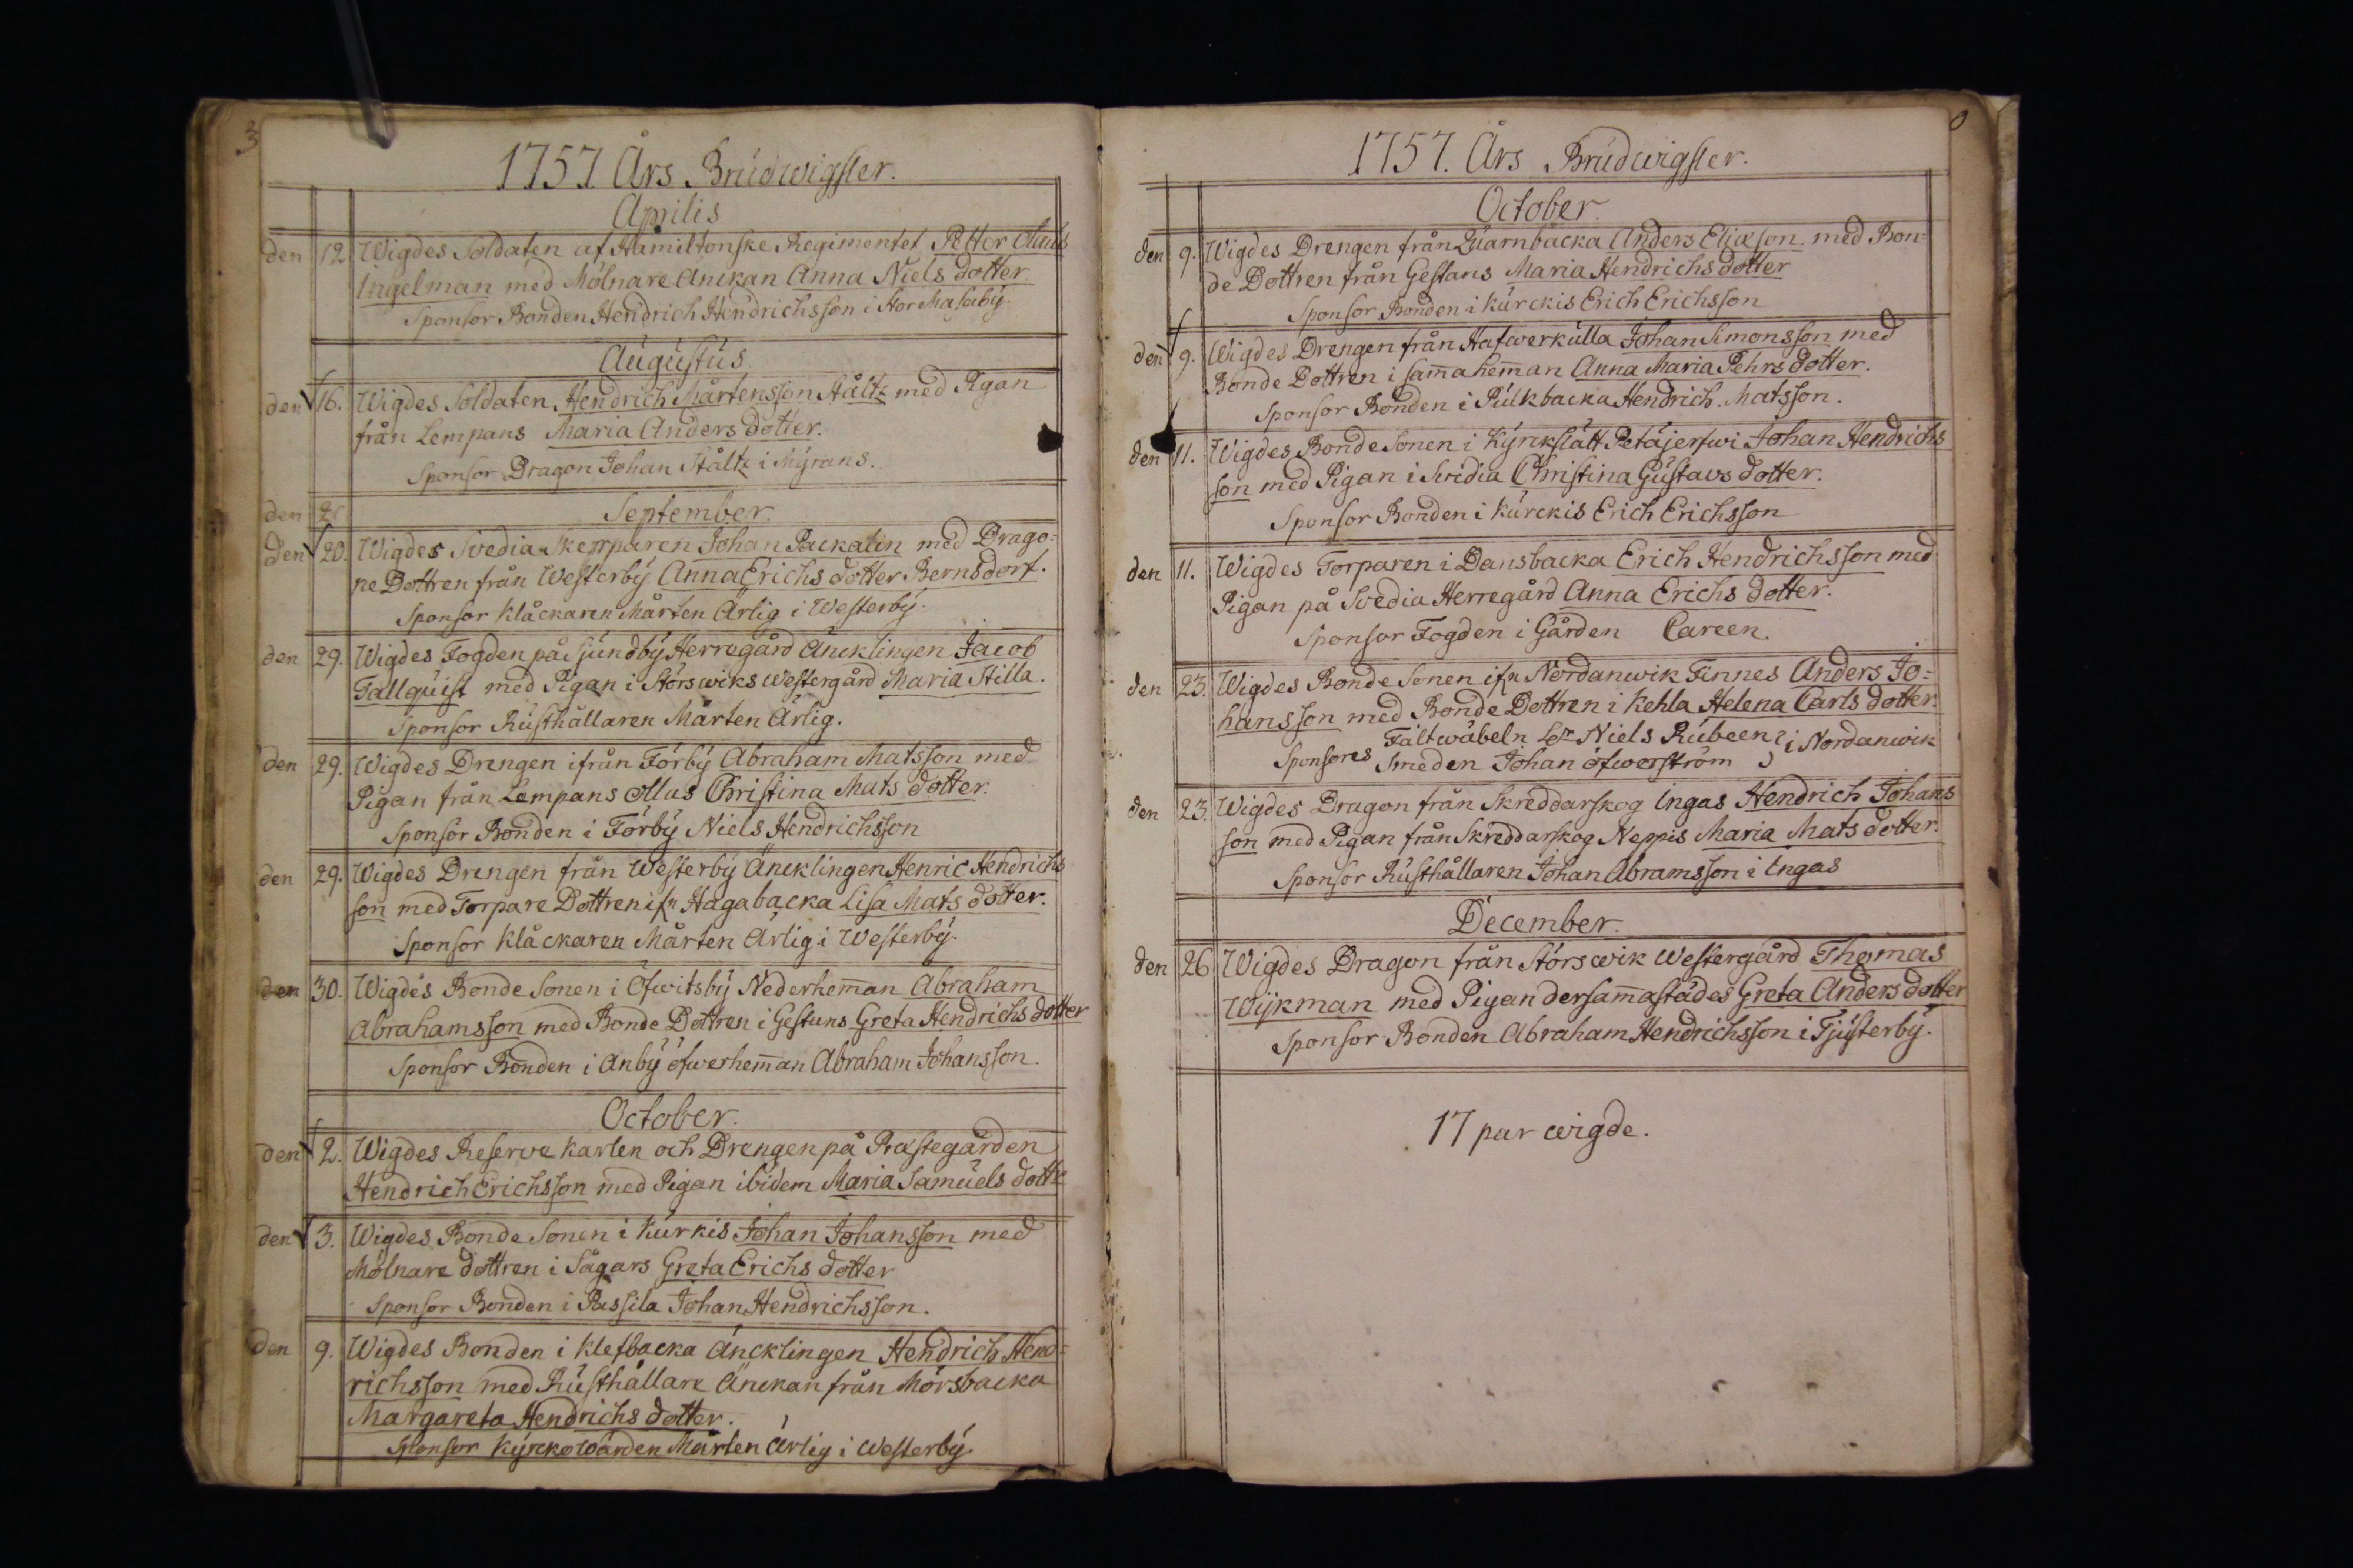 3
1757 Års Brudwigsler.
Aprilis
den 12 Wigdes Soldaten af Hamiltonske Regimentet Petter
Ingelman med Mölnare Änckan Anna Niels dotter
Sponsor Bonden Hendrich Hendrichsson i Stor Masaby.
Augustus
den 16. Wigdes Soldaten Hendrich Mårtensson Ståltz med Pigan
från Lempans Maria Anders dotter.
Sponsor Dragon Johan Ståltz i Myrans.
den
September.
den 20. Wigdes Svedia Johan Packalin med Drago-
ne Dottren från Westerby Anna Erichs dotter Bernsdorf.
Sponsor Klåckaren Mårten Ärlig i Westerby.
den 29. Wigdes Fogden på Sjundby Herregård Äncklingen Jacob
Tallquist med Pigan i Störswiks Westergård Maria Stilla.
Sponsor Rusthållaren Mårten Ärlig.
den 29. Wigdes Drengen ifrån Förby Abraham Matsson med
Pigan från Lempans Ollas Christina Mats dotter.
Sponsor Bonden i Förby Niels Hendrichsson
den 29. Wigdes Drengen från Westerby Äncklingen Henric Hendrichs
son med Torpare Dottren ifn Hagabacka Lisa Mats dotter.
Sponsor Klåckaren Mårten Ärlig i Westerby.
den 30. Wigdes Bonde Sonen i Öfwitsby Nederhem̄an Abraham
Abrahamsson med Bonde Dottren i Gestans Greta Hendrichs dotter
Sponsor Bonden i Anby öfwerhem̄an Abraham Johansson.
October.
den 2. Wigdes Reserve Karlen och Drengen på Præstegården
Hendrich Erichsson med Pigan ibidem Maria Samuels dottr
den 3. Wigdes Bonde Sonen i Kurkis Johan Johansson med
Mölnare dottren i Sågars Greta Erichs dotter
Sponsor Bonden i Passila Johan Hendrichsson.
den 9. Wigdes Bonden i Klefbacka Äncklingen Hendrich Hend-
richsson med Rusthållare Änckan från Mörsbacka
Margareta Hendrichs dotter.
Sponsor Kyrckowärden Mårten Ärlig i Westerby
1757. Års Brudwigsler.
October.
den 9. Wigdes Drengen från Quarnbacka Anders Eliæson med Bon-
de Dottren från Gestans Maria Hendrichs dotter
Sponsor Bonden i Kurckis Erich Erichsson
den 9. Wigdes Drengen från Hafwerkulla Johan Simonsson med
Bonde Dottren i sam̄a hem̄an Anna Maria Pehrs dotter.
Sponsor Bonden i Pulkbacka Hendrich Matsson.
den 11. Wigdes Bonde Sonen i Kyrckslätt Petäjerfwi Johan Hendrichs
son med Pigan i Svidia Christina Gustavs dotter.
Sponsor Bonden i Kurckis Erich Erichsson
den 11. Wigdes Torparen i Dansbacka Erich Hendrichsson med
Pigan på Svedia Herregård Anna Erichs dotter.
Sponsor Fogden i Gården Careen.
den 23. Wigdes Bonde Sonen ifn Nordanwik Finnes Anders Jo-
hansson med Bonde Dottren i Kehla Helena Carls dotter.
Sponsores Fältwäbeln Niels Rubeen
Smeden Johan öfwerström i Nordanwik
den 23. Wigdes Dragon från Skreddarskog Ingas Hendrich Johans
son med Pigan från Skreddarskog Neppis Maria Mats dotter.
Sponsor Rusthållaren Johan Abramsson i Ingas
December.
den 26 Wigdes Dragon från Störswik Westergård Thomas
Wijkman med Pigan dersam̄astädes Greta Anders dotter
Sponsor Bonden Abraham Hendrichsson i Tjusterby.
17 par wigde.